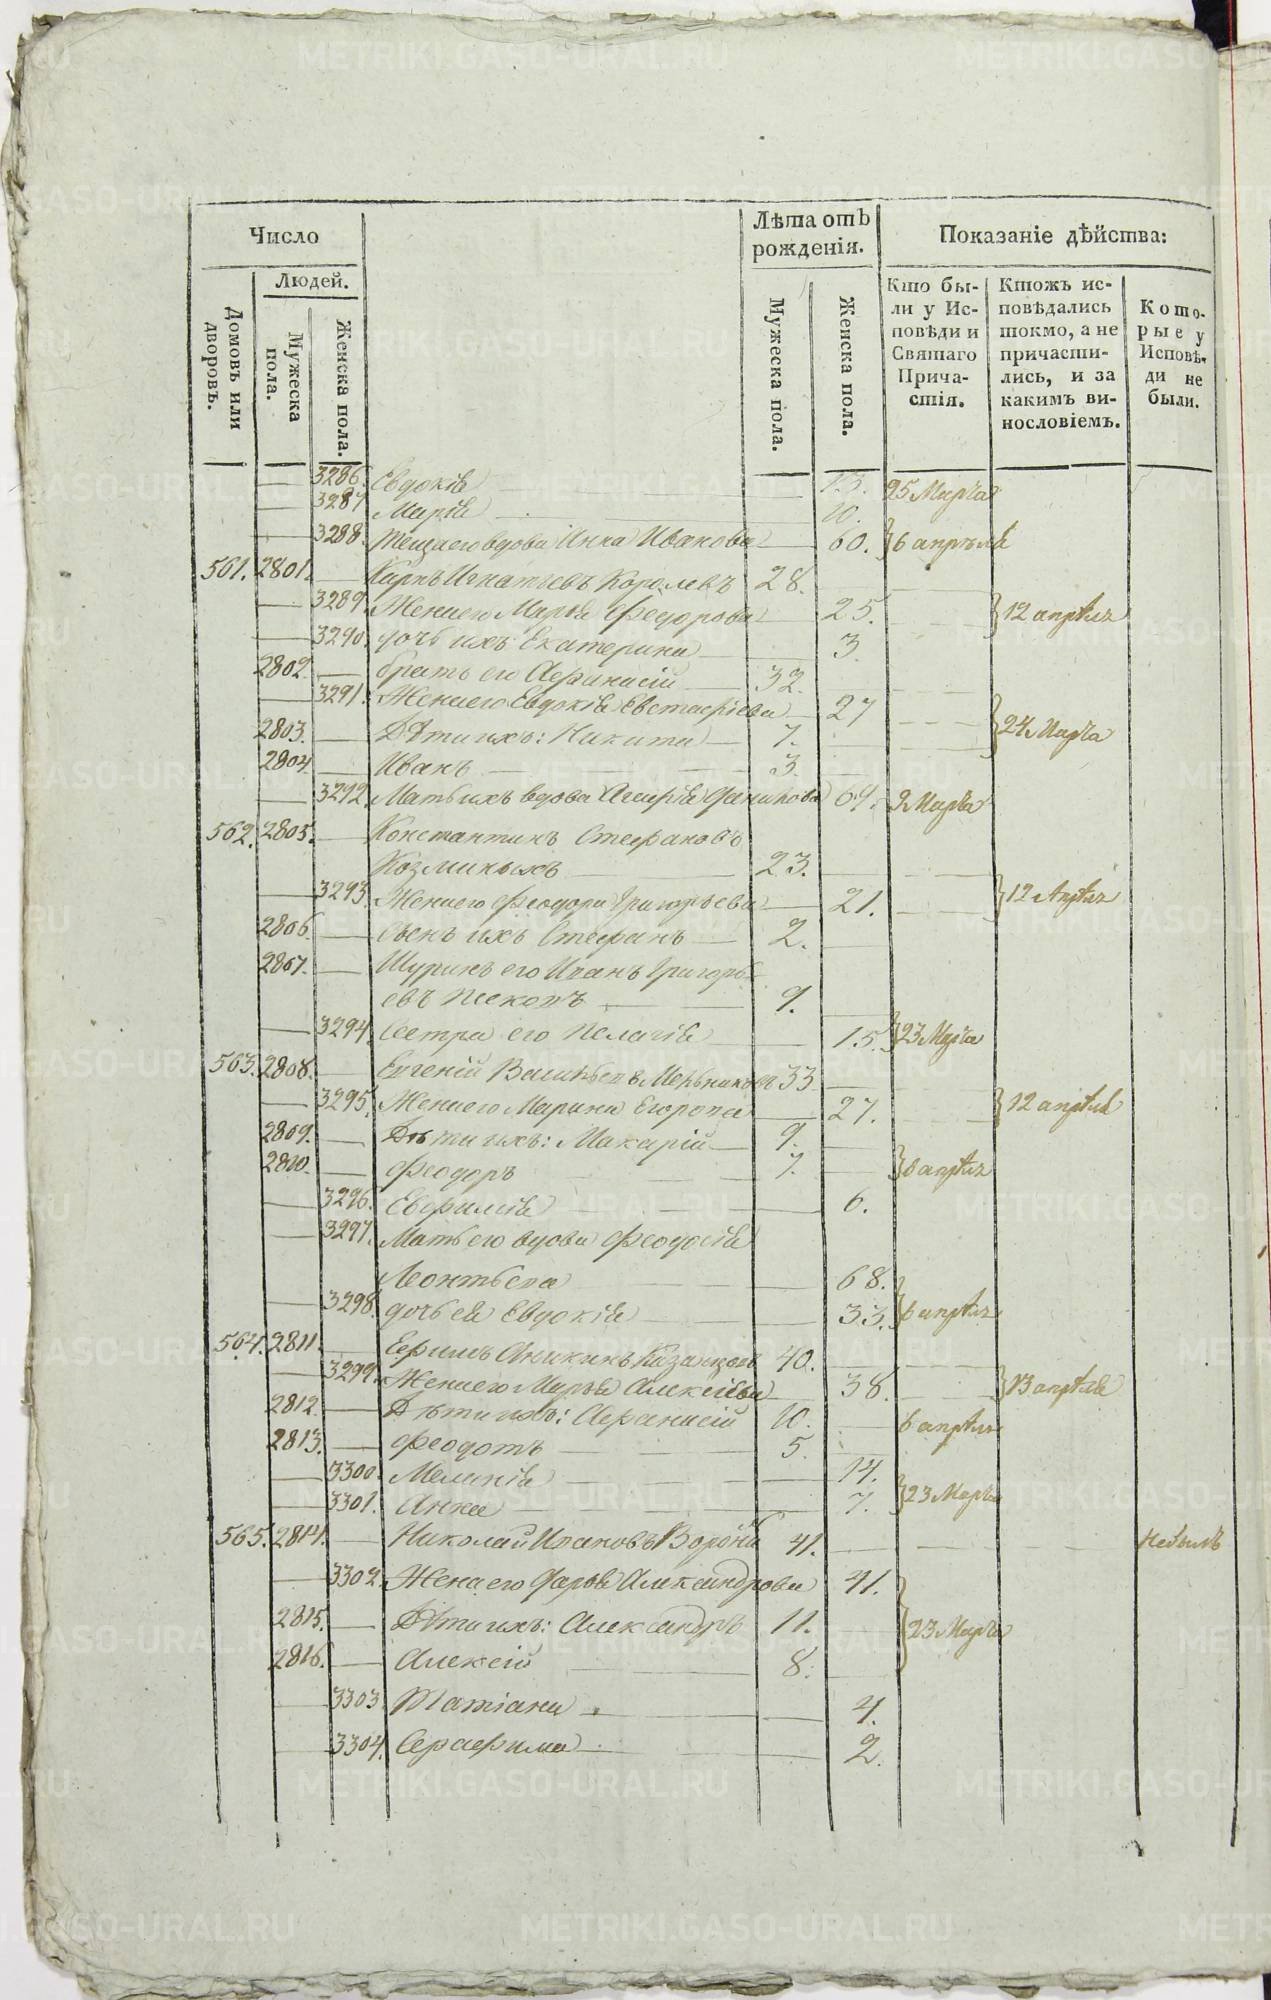 Число
Лѣта отъ рожденія.
Показаніе дѣйства:
Людей.
Домовъ или дворовъ.
Мужеска пола.
Женска пола.
Мужеска пола.
Женска пола.
Кто были у Исповѣди и Святаго Причастія.
Ктожъ исповѣдались токмо, а не причастились, и за какимъ винословіемъ.
Которые у Исповѣди не были.
3286. Евдокія 13. 25 Марта
3287 Марія 10.
3288. теща его вдова Анна Иванова 60. 6 апрѣля
561. 2801. Карпъ Игнатьевъ Королевъ 28.
3289 Жена его Марья Феодорова 25. 12 апрѣля
3290. дочь ихъ Екатерина 3.
2802. братъ его Афанасій 32.
3291. Жена его Евдокія Евстафіева 27 24 Марта
2803. Дѣти ихъ: Никита 7.
2804. Иванъ 3.
3292. Мать ихъ вдова 69. 9 Марта
562. 2805. Константинъ Стефановъ
Козминыхъ 23.
3293. Жена его Феодора Григорьева 21. 12 Апрѣля
2806. Сынъ ихъ Стефанъ 2.
2807. Шуринъ его Иванъ Григорь-
евъ 9.
3294. Сестра его Пелагія 15. 23 Марта
563. 2808. Евгеній Васильевъ Мельниковъ 33
3295. Жена его Марина Егорова 27. 12 апрѣля
2809. Дѣти ихъ: Макарій 9.
2810. Феодоръ 7. 6 апрѣля
3296. Евфимія 6.
3297. Мать его вдова Феодосія
Леонтьева 68.
3298. дочь ея Евдокія 33. 6 апрѣля
564. 2811. Ефимъ Аникинъ Казанцовъ 40.
3299. Жена его Марья Алексіева 38. 13 апрѣля
2812. Дѣти ихъ: Афанасій 10. 6 апрѣля
2813. Феодотъ 5.
3300. Меланія 14.
3301. Анна 7. 23 Марта
565. 2814. Николай Ивановъ 41. Небылъ
3302. Жена его Дарья Александрова 41.
2815. Дѣти ихъ: Александръ 11. 23 Марта
2816. Алексій 8.
3303. Татіана 4.
3304. Серафима 2.
METRIKI.GASO-URAL.RU